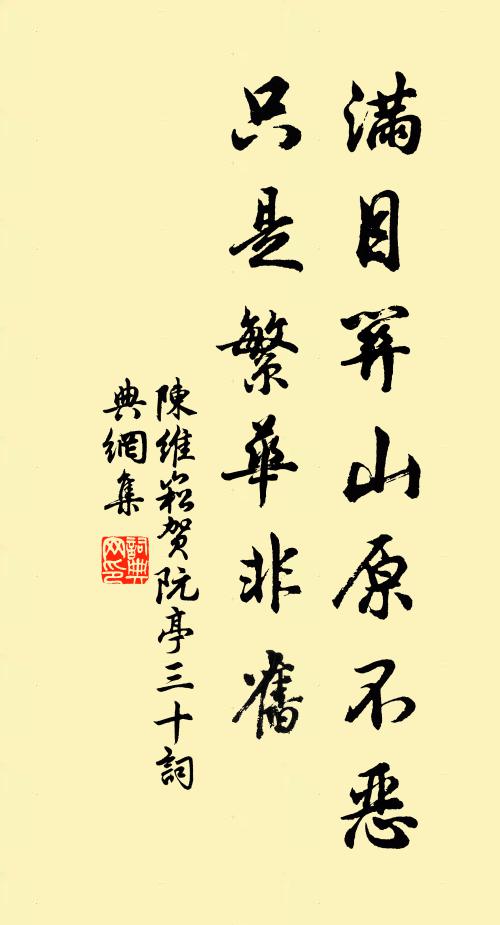 滿目關山原不惡
只是繁華非舊
陳維崧賀阮亭三十詞
典網集
詞典網印